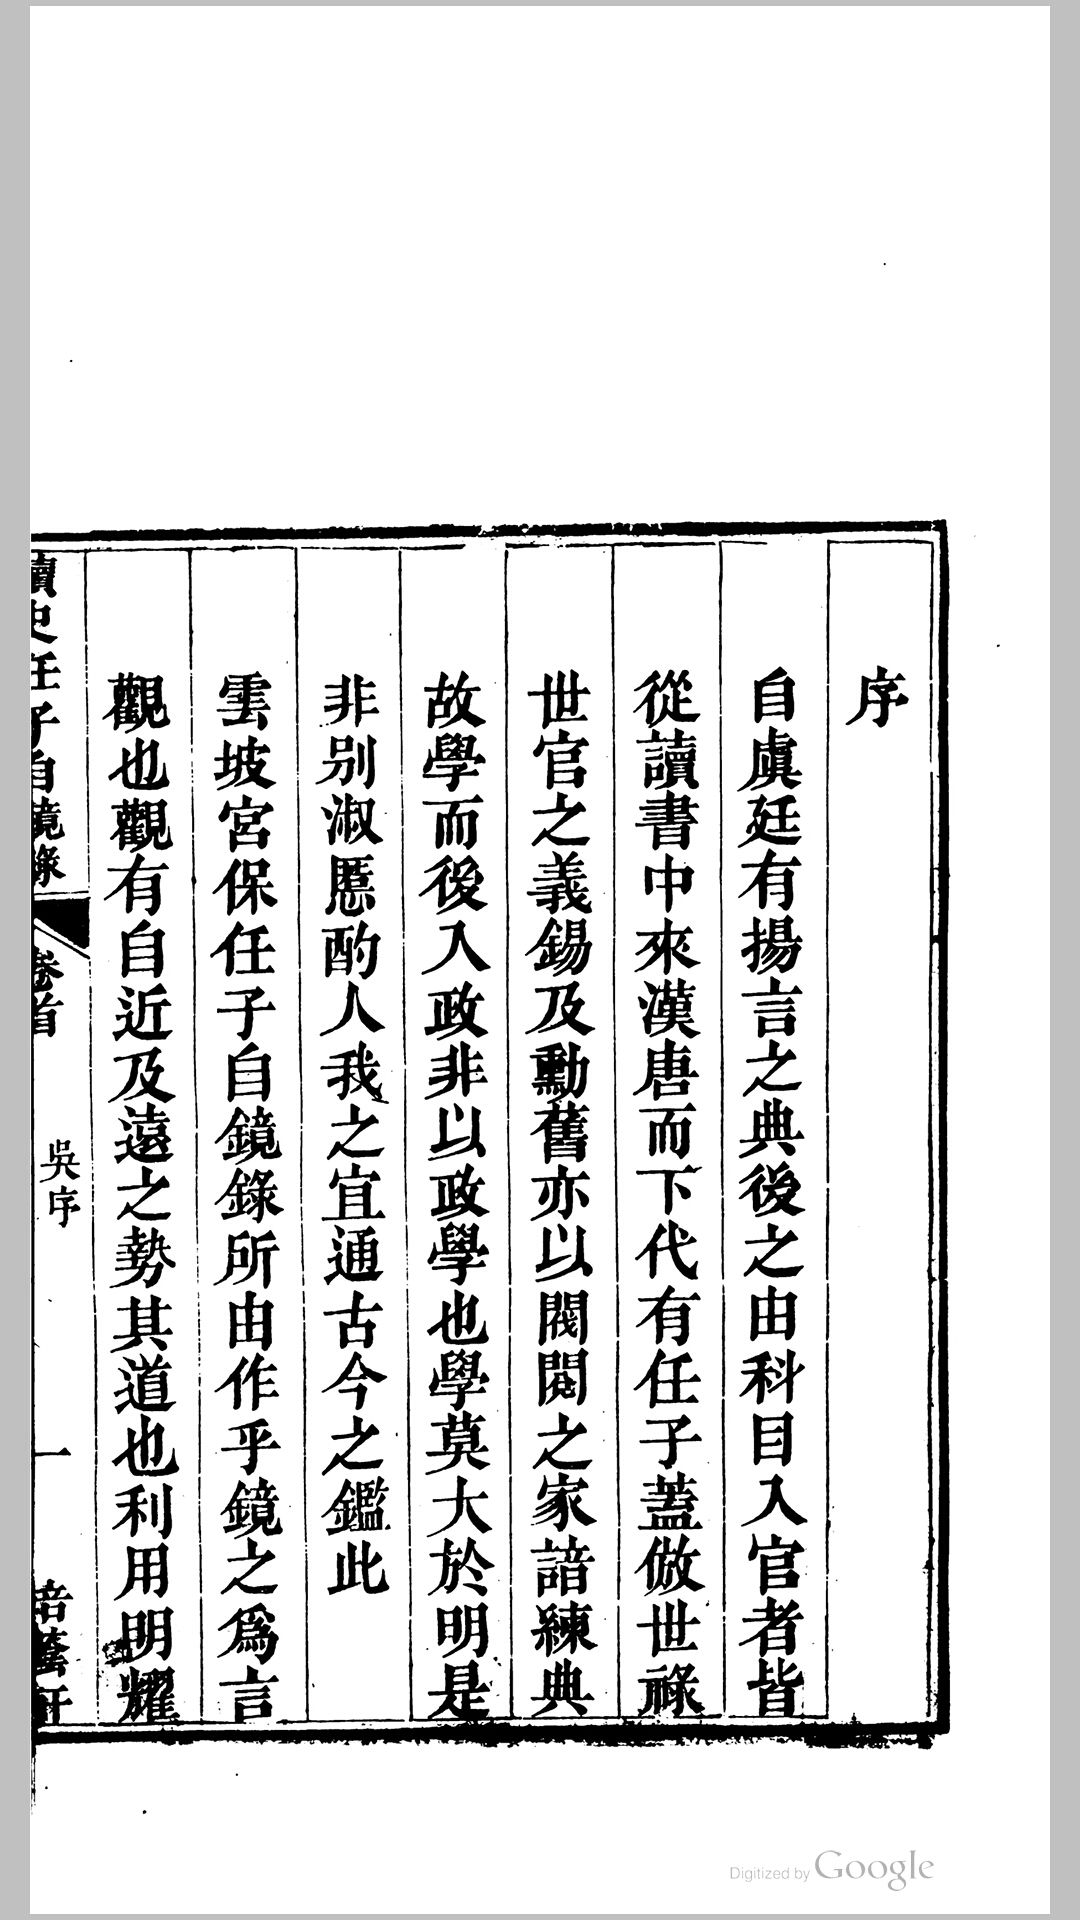 序
自虞廷有揚言之典後之由科目入官者皆
從讀書中來漢唐而下代有任子蓋倣世祿
世官之義錫及勳舊亦以閥閱之家諳練典
故學而後入政非以政學也學莫大於明是
非別淑慝酌人我之宜通古今之鑑此
雲坡宮保任子自鏡錄所由作乎鏡之爲言
觀也觀有自近及遠之勢其道也利用明耀
讀史任子自鏡錄
卷首
吳序
一
培蔭軒
Digitized by Google